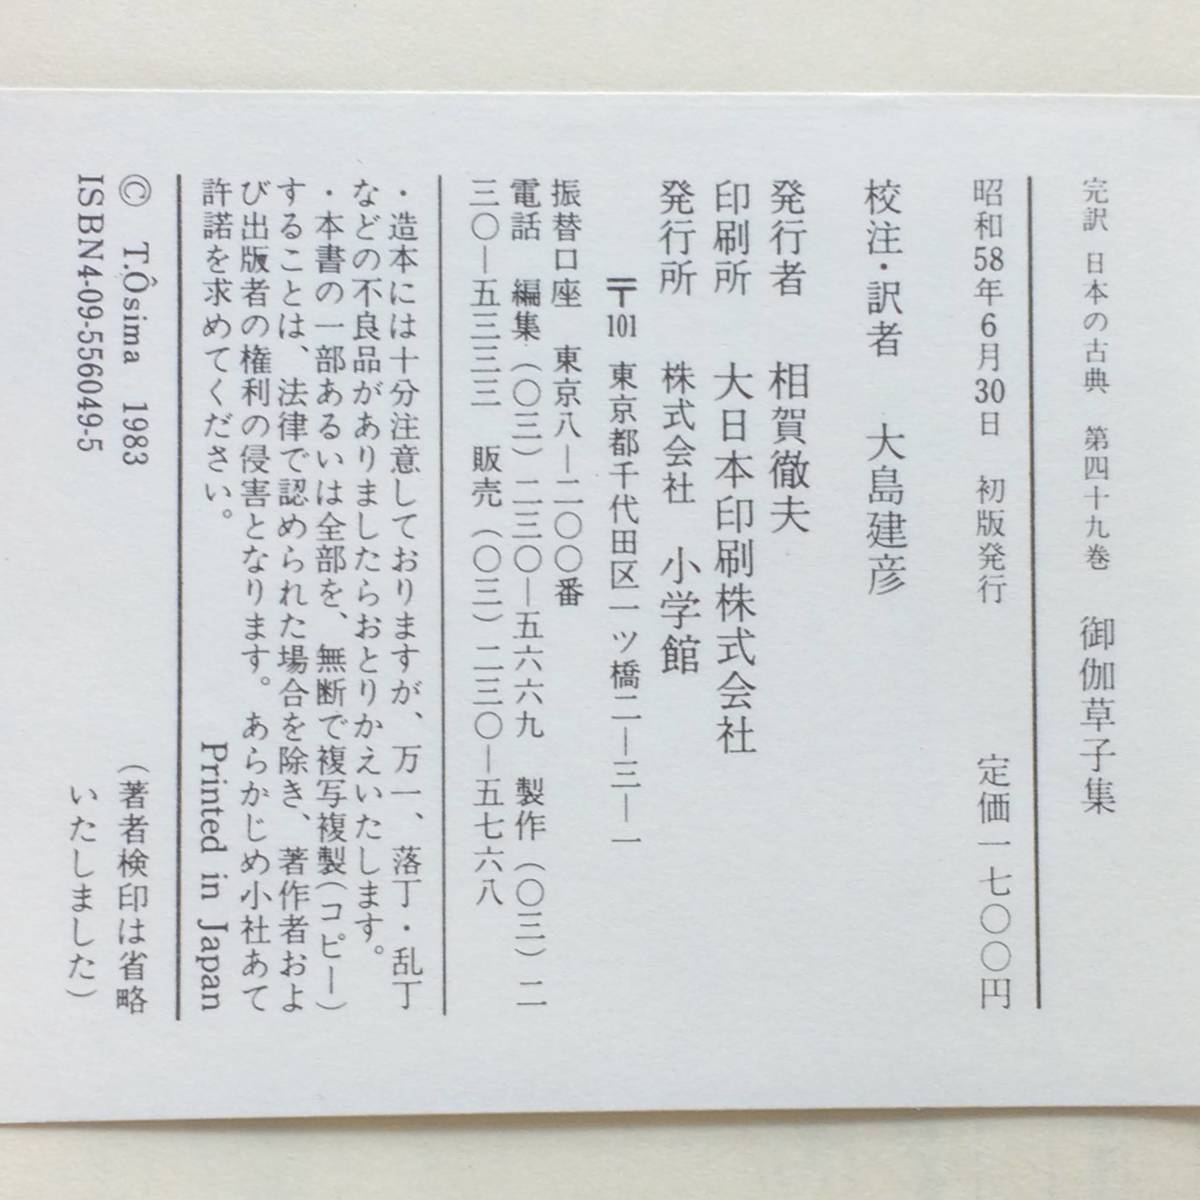 完訳 日本の古典 第四十九巻 御伽草子集
昭和58年6月30日 初版発行 定価一七〇〇円
校注・訳者 大島建彦
発行者 相賀徹夫
印刷所 大日本印刷株式会社
発行所 株式会社 小学館
〒101 東京都千代田区一ツ橋二ー三ー一
振替口座 東京八ー二〇〇番
電話 編集(〇三)二三〇ー五六六九 製作(〇三)二
三〇ー五三三三 販売(〇三)二三〇ー五七六八
・造本には十分注意しておりますが、万一、落丁・乱丁
などの不良品がありましたらおとりかえいたします。
・本書の一部あるいは全部を、無断で複写複製(コピー)
することは、法律で認められた場合を除き、著作者およ
び出版者の権利の侵害となります。あらかじめ小社あて
許諾を求めてください。 Printed in Japan
© T.Ôsima 1983 (著者検印は省略
いたしました)
ISBN4-09-556049-5